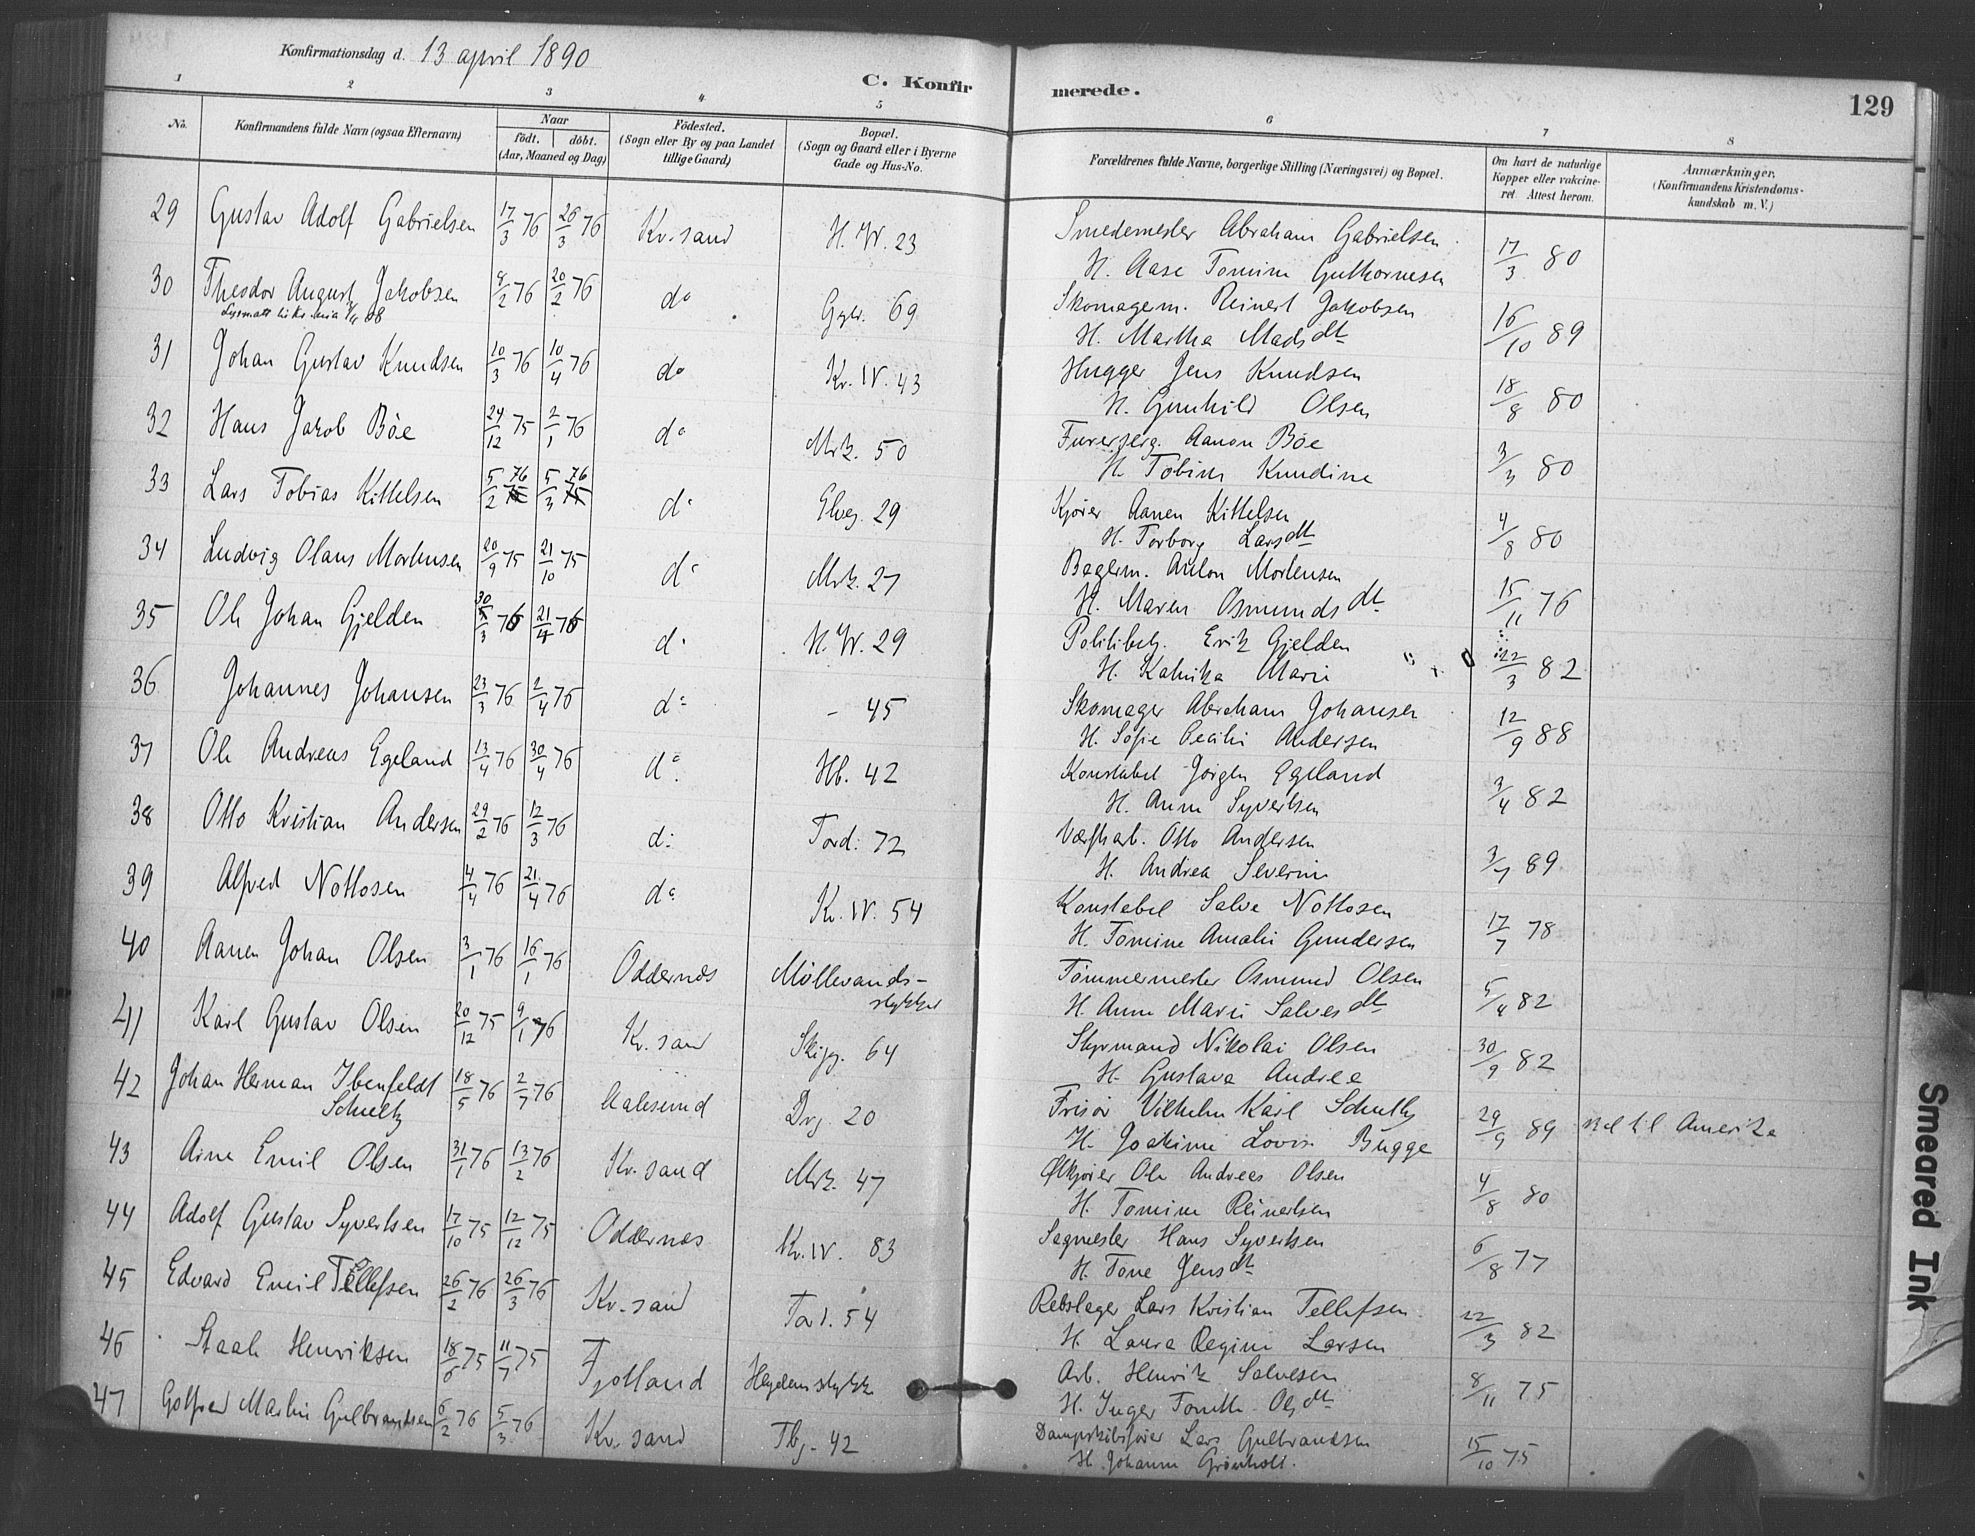 Konfirmationsdag d. 13 april 1890
C. Konfirmerede.
129
1 2 3 4 5 6 7 8
No. Konfirmandens fulde Navn (ogsaa Efternavn) Naar født. døbt. (Aar, Maaned og Dag) Fødested. (Sogn eller By og paa Landet tillige Gaard) Bopæl. (Sogn og Gaard eller i Byerne Gade og Hus-No. Forældrenes fulde Navne, borgerlige Stilling (Næringsvei) og Bopæl. Om havt de naturlige Kopper eller vakcineret Attest herom. Anmærkninger. (Konfirmandens Kristendomskundskab m. V.)
29 Gustav Adolf Gabrielsen 17/3 76 26/3 76 Kr.sand H. W. 23 Smedemester Abraham Gabrielsen 17/3 80
H. Aase Tomine Guthormesen
30 Theodor August Jakobsen 8/2 76 20/2 76 do 69 Skomagerm. Reinert Jakobsen 16/10 89
H. Martha Madsdtr
31 Johan Gustav Knudsen 10/3 76 10/4 76 do Kr. W. 43 Hugger Jens Knudsen 18/8 80
H. Gunhild Olsen
32 Hans Jakob Bøe 24/12 75 2/1 76 do Mrk. 50 Aanon Bøe 3/3 80
H. Tobine Knudine
33 Lars Tobias Kittelsen 5/2 76 5/3 76 do Elveg. 29 Kjører Aanen Kittelsen 4/8 80
H. Torborg Larsdtr
34 Ludvig Olaus Mortensen 20/9 75 21/10 75 do Mrk. 27 Bagerm. Anton Mortensen 15/11 76
H. Maren Osmundsdtr
35 Ole Johan Gjelden 30/3 76 21/4 76 do H. W. 29 Politibetj. Erik Gjelden 22/3 82
H. Katrika Marie
36 Johannes Johansen 23/3 76 2/4 76 do - 45 Skomager Abraham Johansen 12/9 88
H. Sofie Cecilie Andersen
37 Ole Andreas Egeland 13/4 76 30/4 76 do Hb. 42 Konstabel Jørgen Egeland 3/4 82
H. Anne Syvertsen
38 Otto Kristian Andersen 29/2 76 12/3 76 do Tord. 72 Værftarb. Otto Andersen 3/7 89
H. Andrea Severine
39 Alfred Nottosen 4/4 76 21/4 76 do Kr. W. 54 Konstabel Salve Nottosen 17/7 78
H. Tomine Amalie Gundersen
40 Aanen Johan Olsen 3/1 76 16/1 76 Oddernes Møllevands-stykket Tømmermester Osmund Olsen 5/4 82
H. Anne Marie Salvesdtr
41 Karl Gustav Olsen 20/12 75 9/1 76 Kr. sand Skipp. 64 Styrmand Nikolai Olsen 30/9 82
H. Gustava Andrea
42 Johan Herman Ibenfeldt Schultz 18/5 76 2/7 76 Aalesund Drg. 20 Frisør Vilhelm Karl Schultz 29/9 89 ud til Amerika
H. Joakime Lovise Bugge
43 Arne Emil Olsen 31/1 76 13/2 76 Kr. sand Mrk. 47 Ølkjører Ole Andreas Olsen 4/8 80
H. Tomine Reinertsen
44 Adolf Gustav Syvertsen 17/10 75 12/12 75 Oddernes Kr. W. 83 Sagmester Hans Syvertsen 6/8 77
H. Tone Jensdtr
45 Edvard Emil Tellefsen 26/2 76 26/3 76 Kr. sand Tord. 54 Rebslager Lars Kristian Tellefsen 22/3 82
H. Laura Regine Larsen
46 Staale Henriksen 18/6 75 11/7 75 Fjotland Arb. Henrik Salvesen 8/11 75
H. Inger Tomth. Olsdtr
47 Gotfred Martin Gulbrandsen 6/2 76 5/3 76 Kr. sand Tbg. 42 Dampskibsfører Lars Gulbrandsen 15/10 75
H. Johanne Grønholt.
Smeared Ink